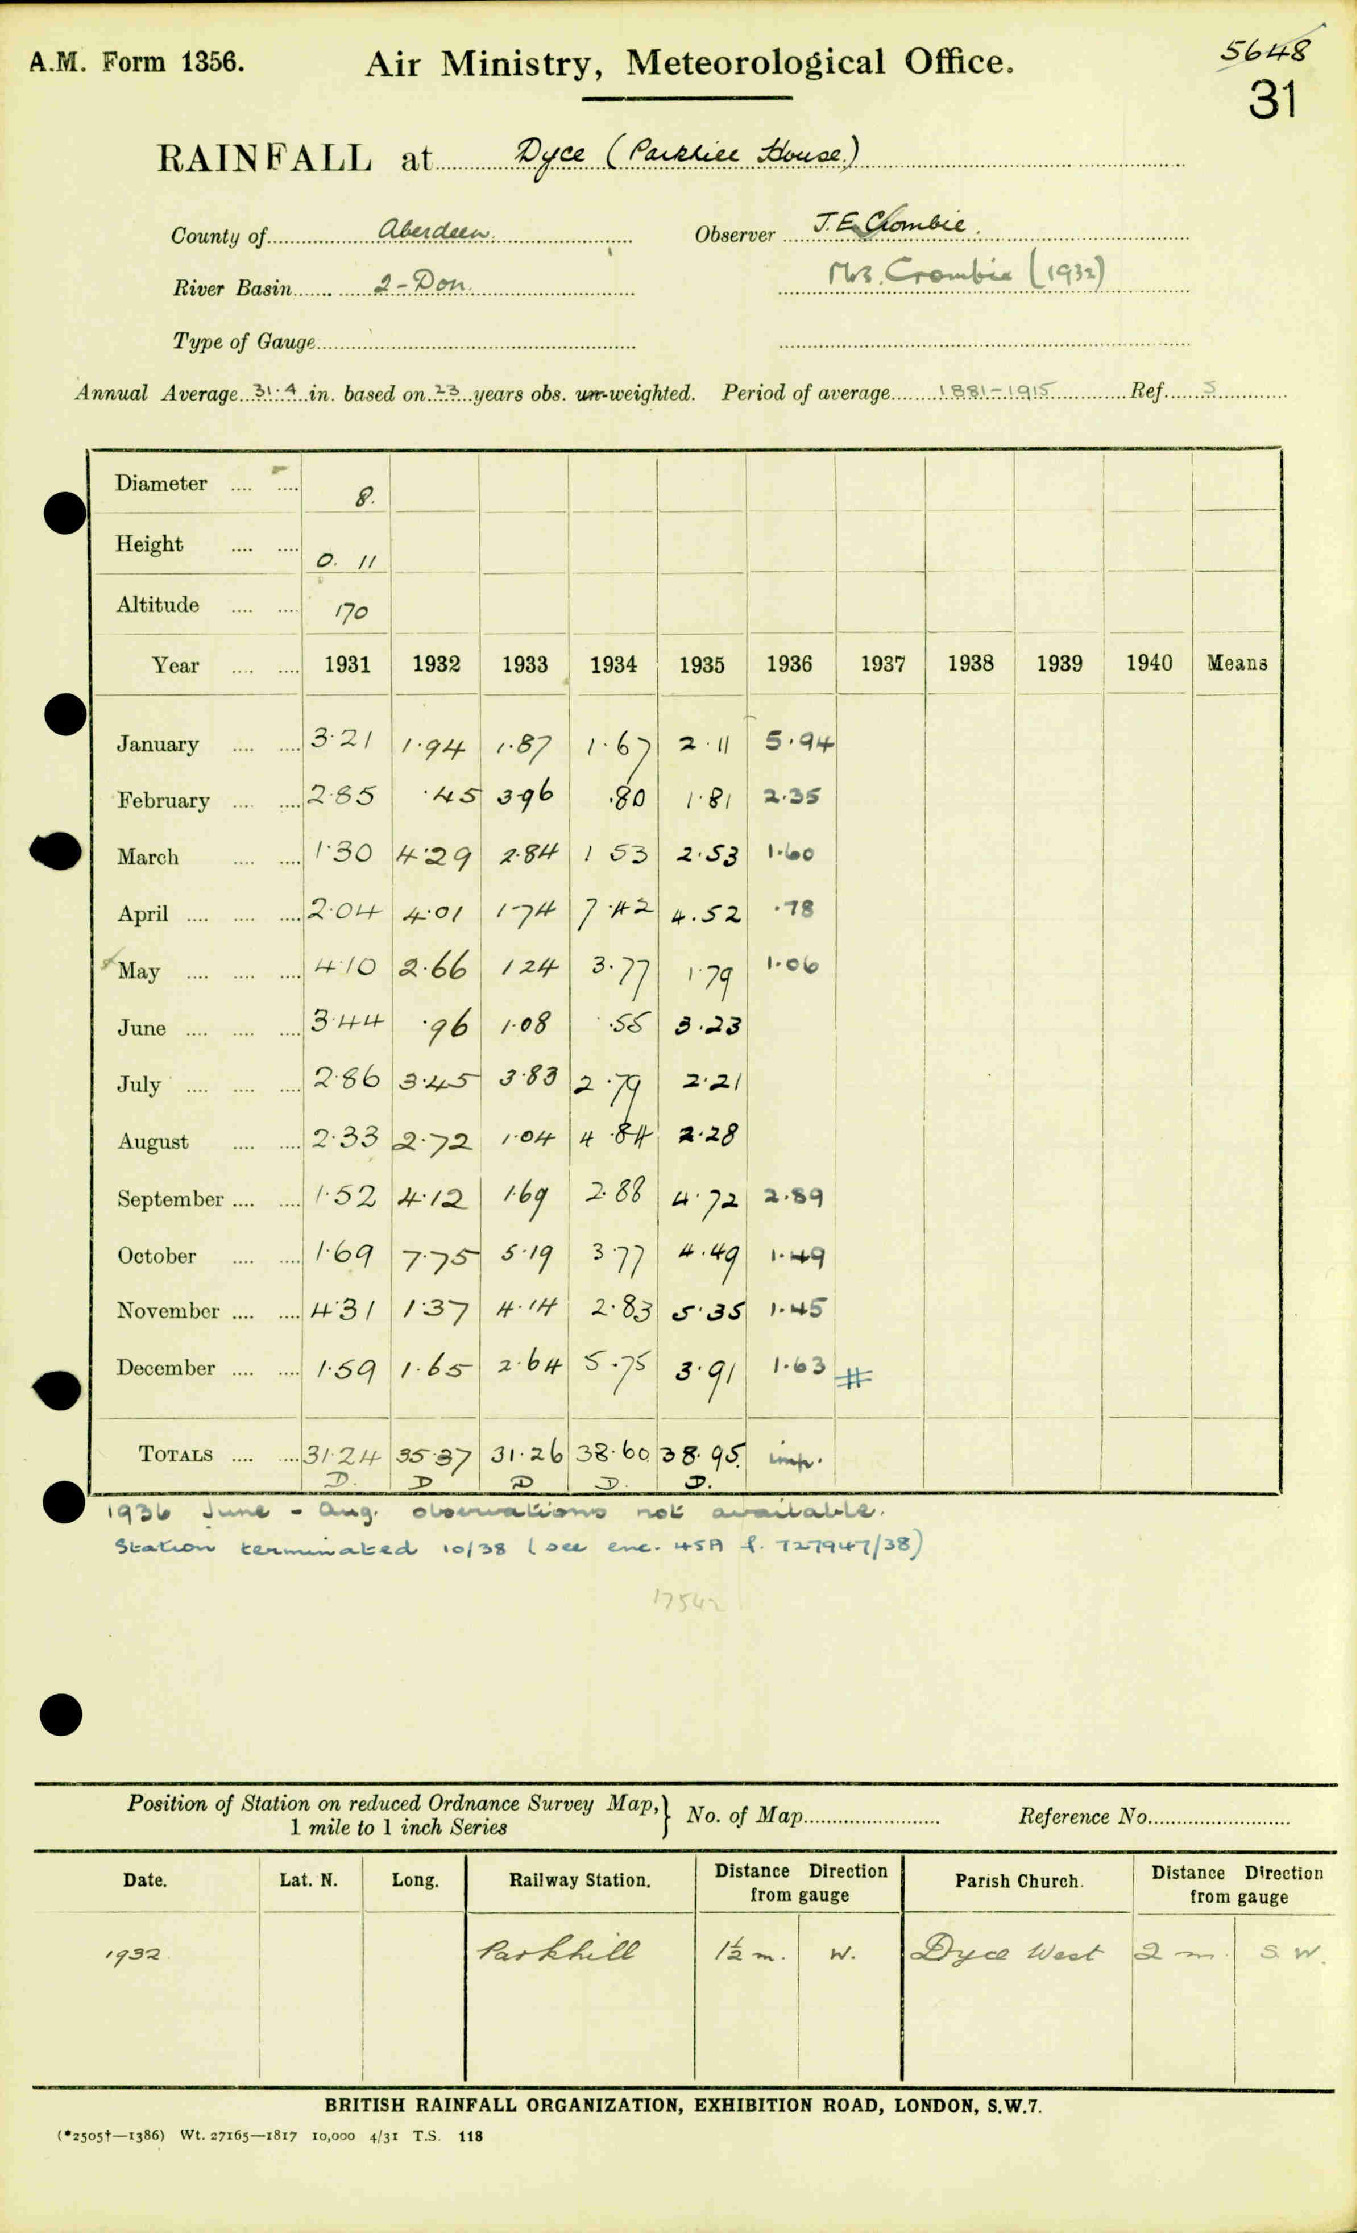 A.M. Form 1356.
Air Ministry, Meteorological Office.
5648
31
RAINFALL at Dyce (Parkhill House)
County of Aberdeen. Observer J.E. Crombie.
River Basin 2-Don. Mrs. Crombie (1932)
Type of Gauge
Annual Average 31.4 in. based on 23 years obs. un-weighted. Period of average 1881-1915 Ref. S
Diameter 8.
Height 0. 11
Altitude 170
Year 1931 1932 1933 1934 1935 1936 1937 1938 1939 1940 Means
January 3.21 1.94 1.87 1.67 2.11 5.94
February 2.85 .45 3.96 .80 1.81 2.35
March 1.30 4.29 2.84 1 53 2.53 1.60
April 2.04 4.01 1.74 7.42 4.52 .78
May 4.10 2.66 1 24 3.77 1.79 1.06
June 3.44 .96 1.08 .55 3.23
July 2.86 3.45 3.83 2.79 2.21
August 2.33 2.72 1.04 4.84 2.28
September 1.52 4.12 1.69 2.88 4.72 2.89
October 1.69 7.75 5.19 3.77 4.49 1.49
November 4.31 1.37 4.14 2.83 5.35 1.45
December 1.59 1.65 2.64 5.75 3.91 1.63 #
TOTALS 31.24 35.37 31.26 38.60 38.95. imp.
D. D D D. D.
1936 June - Aug. observations not available.
Station terminated 10/38 (see enc. 45A f. 727947/38)
17542
Position of Station on reduced Ordnance Survey Map,} No. of Map Reference No.
1 mile to 1 inch Series
Date. Lat. N. Long. Railway Station. Distance Direction from gauge Parish Church. Distance Direction from gauge
1932 Parkhill 1½ m. W. Dyce West 2 m. S. W.
BRITISH RAINFALL ORGANIZATION, EXHIBITION ROAD, LONDON, S.W.7.
(*2505†—1386) Wt. 27165—1817 10,000 4/31 T.S. 118